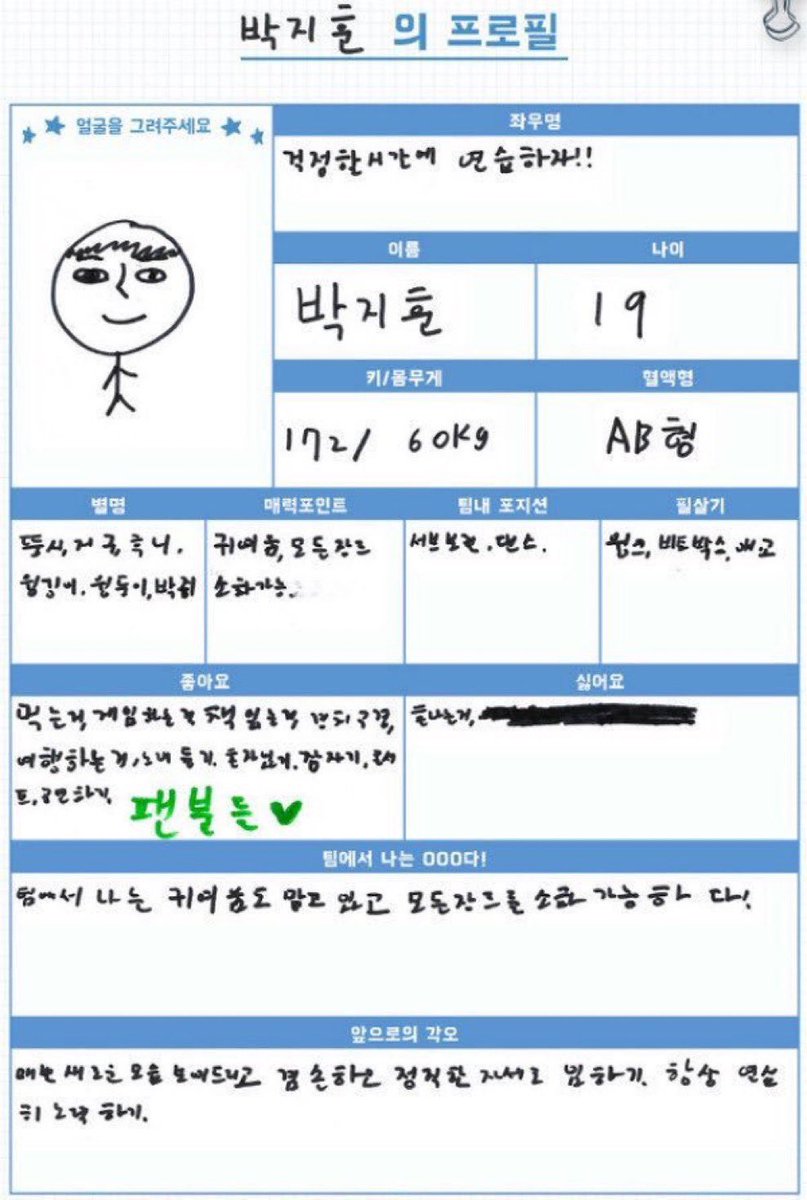 박지훈 의 프로필
얼굴을 그려주세요
좌우명
걱정할시간에 연습하자!!
이름
나이
박지훈
19
키/몸무게
혈액형
172/ 60Kg
AB형
별명
매력포인트
팀내 포지션
필살기
귀여움, 모든장르
소화가능.
서브보컬, 댄스.
윙크, 비트박스, 애교
윙깅이, 윙둥이,
좋아요
싫어요
먹는거, 게임하는것 책 읽는것
여행하는거, 노래 듣기. 혼자놀기. 잠자기,
공연하기.
팬분들♥
팀에서 나는 OOO다!
팀에서 나는 귀여움도 맡고 있고 모든장르를 소화 가능하 다!
앞으로의 각오
매번 새로운 모습 보여드리고 겸손하고 정직한 자세로 임하기. 항상 열심
히 노력 하기.